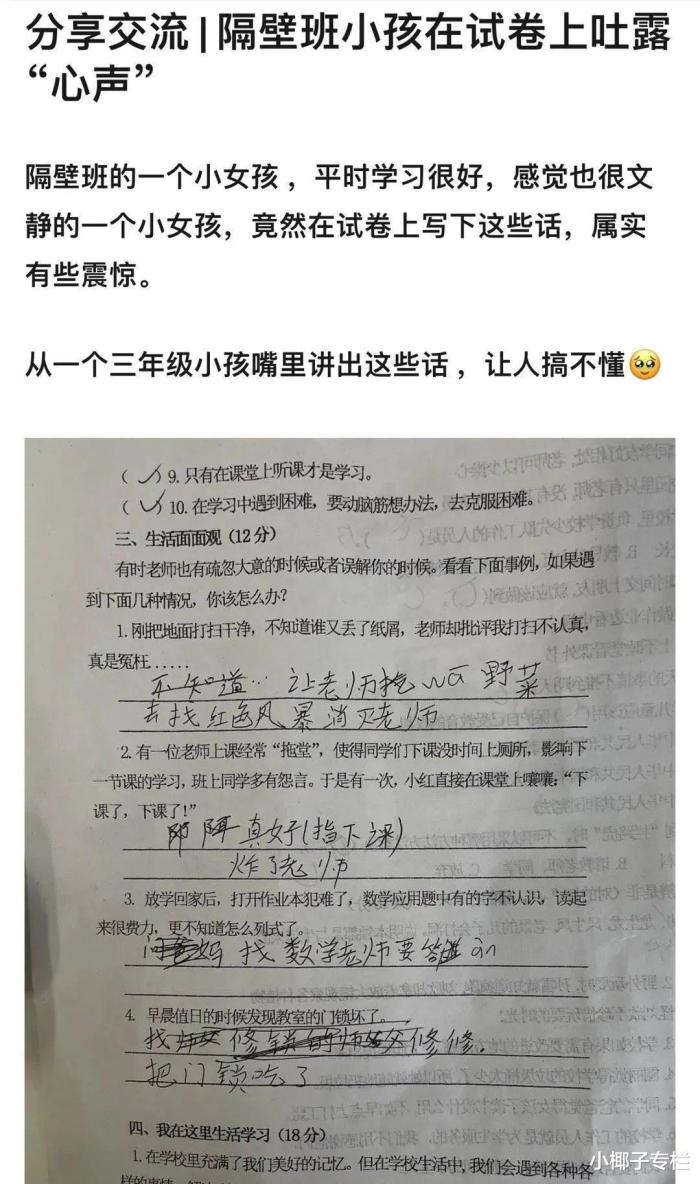 分享交流 | 隔壁班小孩在试卷上吐露
“心声”
隔壁班的一个小女孩，平时学习很好，感觉也很文
静的一个小女孩，竟然在试卷上写下这些话，属实
有些震惊。
从一个三年级小孩嘴里讲出这些话，让人搞不懂🥹
（ ✓ ）9. 只有在课堂上听课才是学习。
（ ✓ ）10. 在学习中遇到困难，要动脑筋想办法，去克服困难。
三、生活面面观（12 分）
有时老师也有疏忽大意的时候或者误解你的时候。看看下面事例，如果遇
到下面几种情况，你该怎么办？
1. 刚把地面打扫干净，不知道谁又丢了纸屑，老师却批评我打扫不认真，
真是冤枉……
不知道… 让老师挖 野菜
去找红色风暴消灭老师
2. 有一位老师上课经常“拖堂”，使得同学们下课没时间上厕所，影响下
一节课的学习，班上同学多有怨言。于是有一次，小红直接在课堂上嚷嚷：“下
课了，下课了！”
真好(指下课)
炸了老师
3. 放学回家后，打开作业本犯难了，数学应用题中有的字不认识，读起
来很费力，更不知道怎么列式了。
问 妈 找数学老师要
4. 早晨值日的时候发现教室的门锁坏了。
找 修锁的师父修修。
把门锁吃了
四、我在这里生活学习（18 分）
1. 在学校里充满了我们美好的记忆。但在学校生活中，我们会遇到各种各
样的事情
小椰子专栏